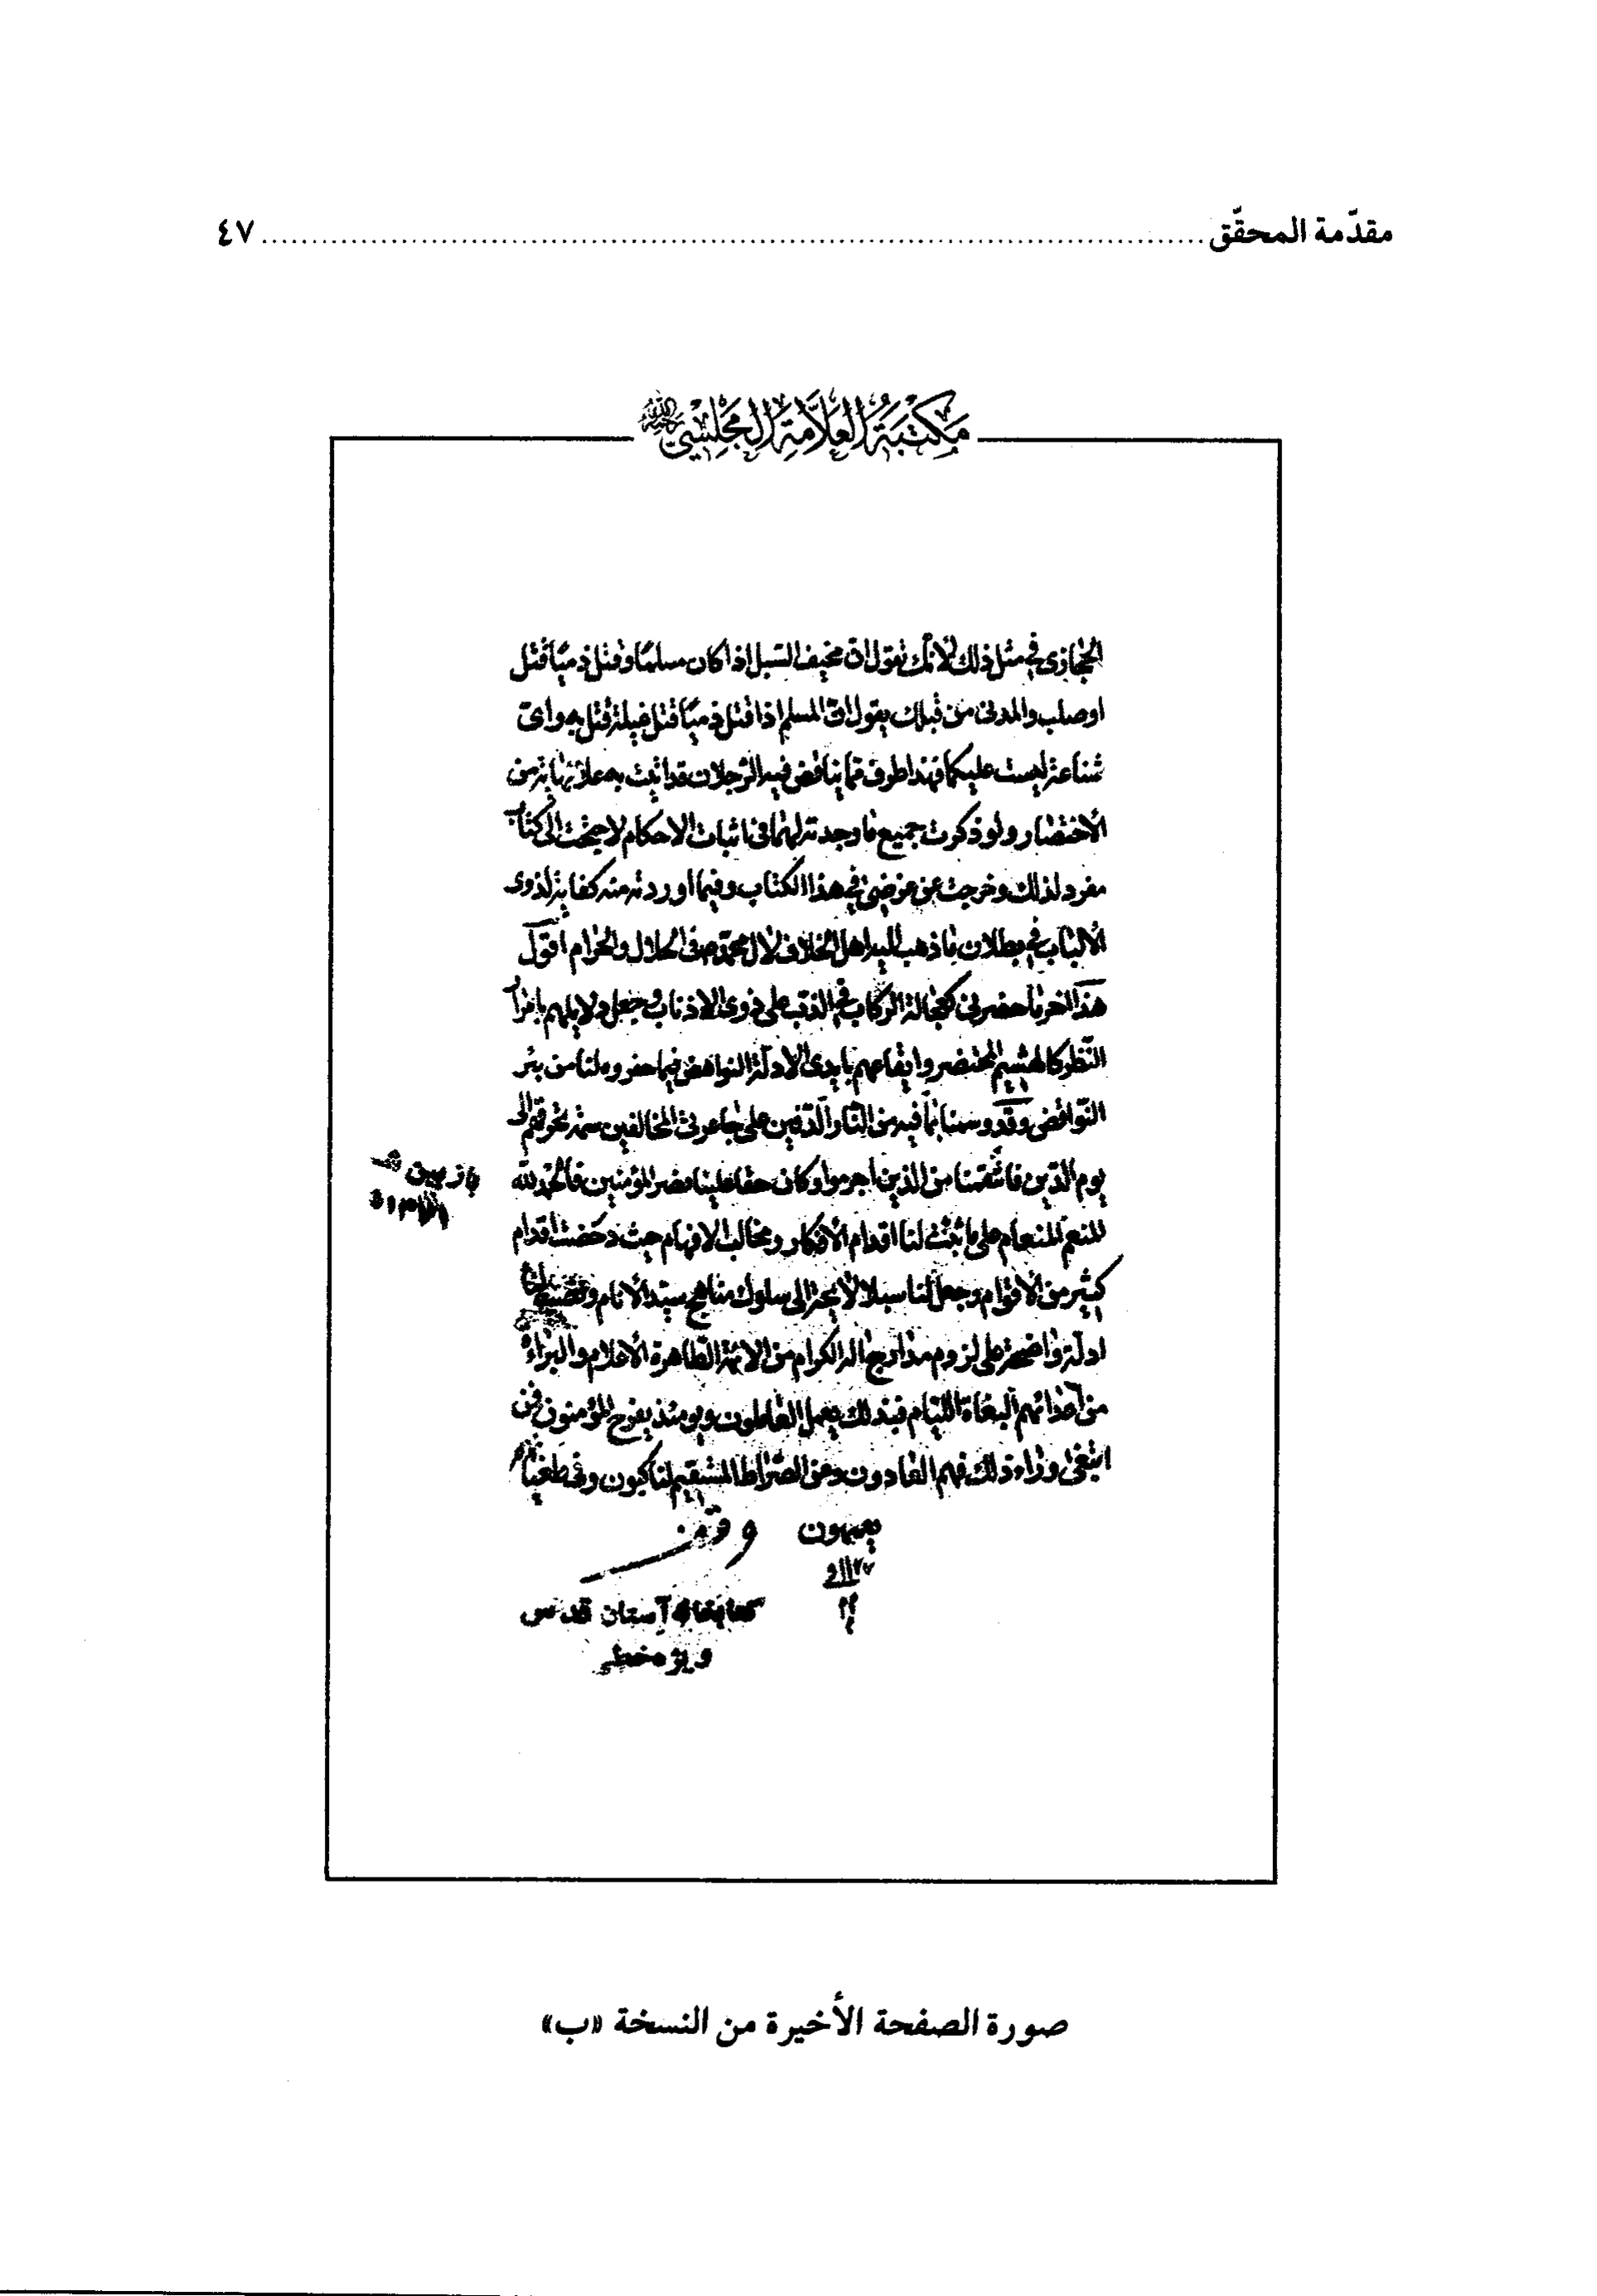 مقدّمة المحقّق ........ ٤٧
مَكتَبَةُ العَلّامَةِ المَجلِسي
الحجازى في مثل ذلك لانك تقول ان مخيف السبل اذا كان مسلمًا وقتل ذميًا قتل
او صلب والمدنى من قبلك يقول ان المسلم اذا قتل ذميًا قتل غيلة قتل به واى
شناعة ليست عليكما فهذا طرف مما يناقض فيه الرجلان قد اثبت به على نهاية من
الأختصار ولو ذكرت جميع ما وجدته لهما فى اثبات الاحكام لاحتجت الى كتاب
مفرد لذلك وخرجت عن غرضى في هذا الكتاب وفيما اوردته منه كفاية لذوى
الألباب في بطلان ما ذهب اليه اهل الخلاف لال محمد ص فى الحلال والحرام اقول
هذا اخر ما حضرنى كعجالة الراكب في الذب على ذوى الاذناب وجعل دلايلهم بامرار
النظر كالهشيم المحتضر وايقاعهم بايدى الادلة النواهض فيما حفروه لنا من بئر
النواقض وقد وسمنا بما فيه من النار الدفين على جاعرتى المخالفين سمة تحرقهم الى
يوم الدين فانتقمنا من الذين اجرموا وكان حقا علينا نصر المؤمنين فالحمد لله
المنعم المنعام على ما ثبت لنا اقدام الأفكار ومخالب الافهام حيث دحضت اقدام
كثير من الأقوام وجعل لنا سبلا لايحة الى سلوك مناهج سيد الأنام
ادلة واضحة على لزوم مدارج اله الكرام من الائمة الطاهرة الأعلام والبراءة
من اعدائهم البغاة اللئام فبذلك يعمل العاملون ويومئذ يفرح المؤمنون فمن
ابتغى وراء ذلك فهم العادون وعن الصراط المستقيم لناكبون وفى طغيانهم
يعمهون
بازبين شد
كتابخانه آستان قدس
صورة الصفحة الأخيرة من النسخة «ب»